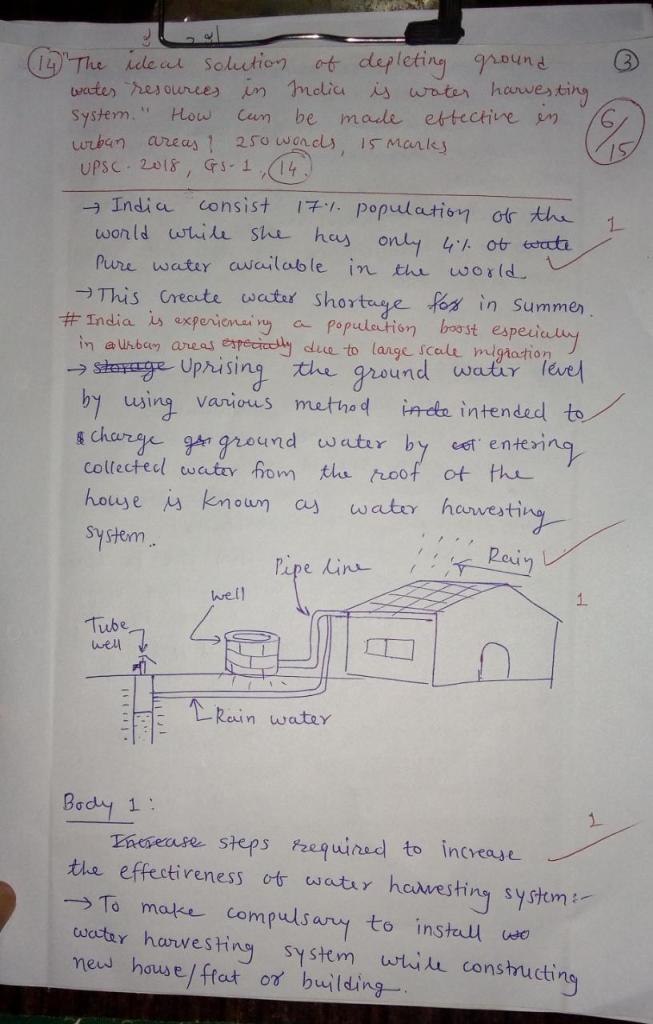 (14) "The ideal solution of depleting ground
water resources in India is water harvesting
system." How can be made effective in
urban areas? 250 words, 15 Marks
UPSC - 2018, GS-1, (14)
3
6/15
→ India consist 17% population of the
world while she has only 4% of wate
Pure water available in the world
1
→ This create water shortage for in summer.
# India is experiencing a population boost especially
in urban areas especially due to large scale migration
→ storage Uprising the ground water level
by using various method inde intended to
charge gr ground water by entering
collected water from the roof of the
house is known as water harvesting
system.
Rain
Pipe line
1
well
Tube
well
Rain water
Body 1:
1
Increase steps required to increase
the effectiveness of water harvesting system:-
→ To make compulsary to install wo
water harvesting system while constructing
new house/flat or building.